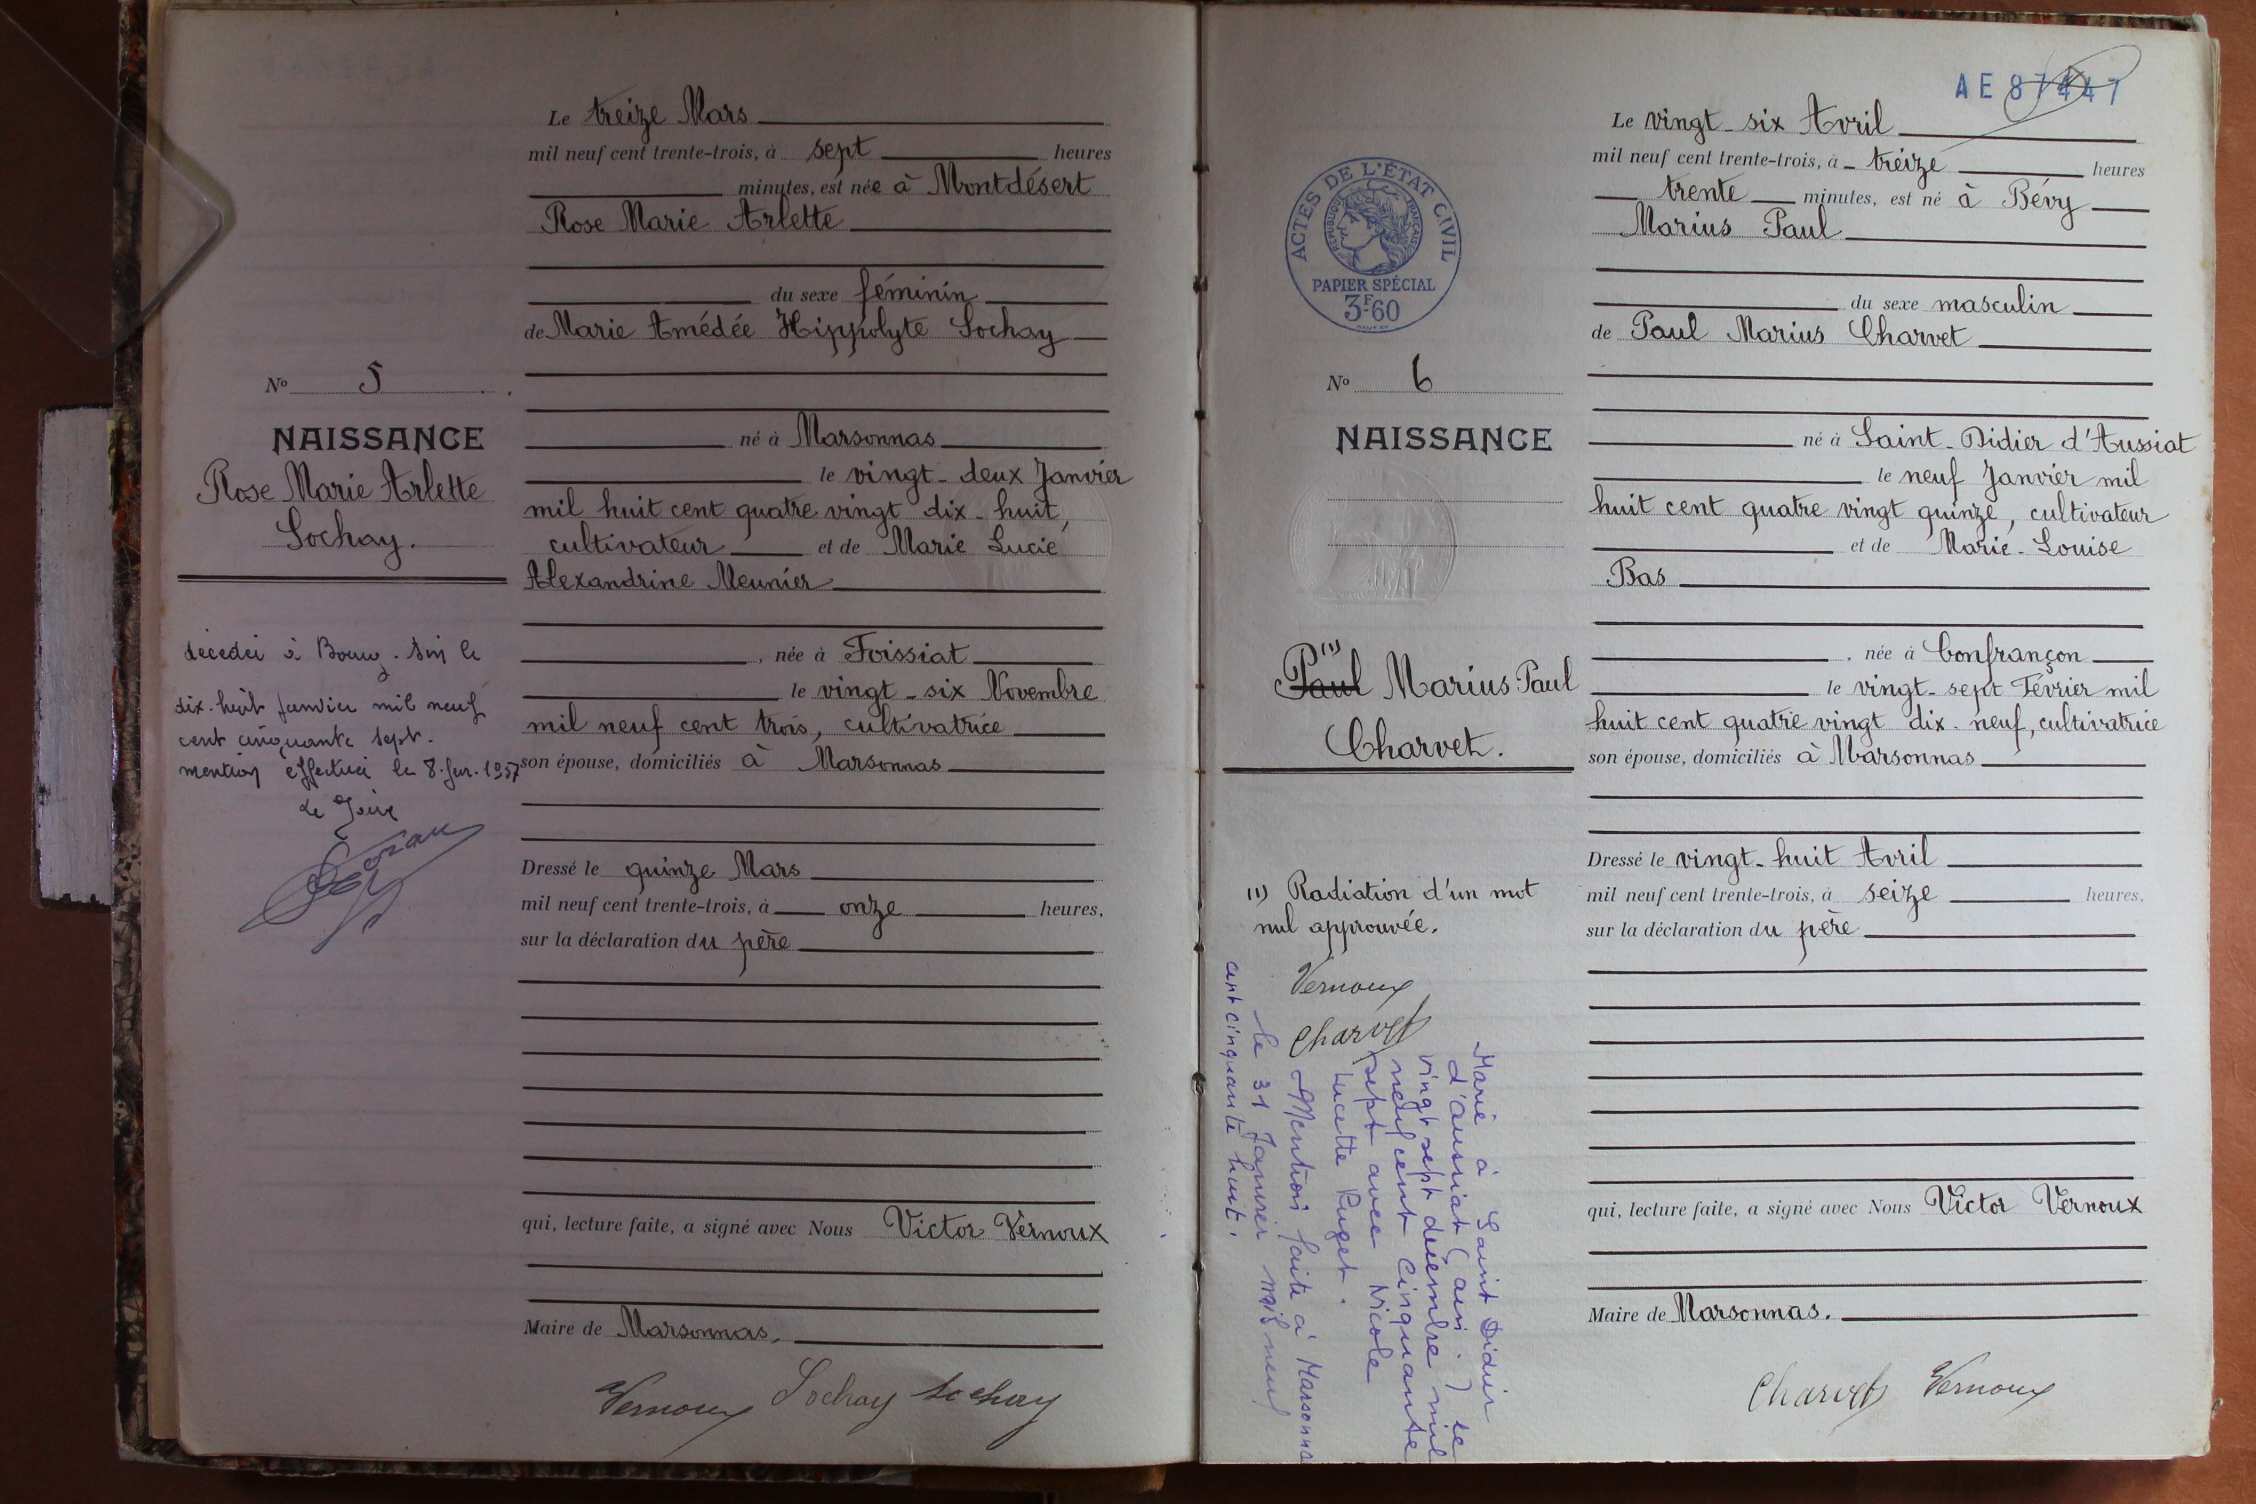 Le treize Mars
mil neuf cent trente-trois, à sept heures
minutes, est née à Montdésert
Rose Marie Arlette
du sexe féminin
de Marie Amédée Hippolyte Sochay
né à Marsonnas
le vingt-deux Janvier
mil huit cent quatre vingt dix-huit,
cultivateur et de Marie Lucie
Alexandrine Meunier
, née à Foissiat
le vingt-six Novembre
mil neuf cent trois, cultivatrice
son épouse, domiciliés à Marsonnas
Dressé le quinze Mars
mil neuf cent trente-trois, à onze heures,
sur la déclaration du père
qui, lecture faite, a signé avec Nous Victor Vernoux
Maire de Marsonnas.
Vernoux Sochay Sochay
No 5
NAISSANCE
Rose Marie Arlette
Sochay.
à Bourg
dix-huit janvier mil neuf
cent cinquante sept.
mention le 8. 1957
AE 87447
Le vingt-six Avril
mil neuf cent trente-trois, à treize heures
trente minutes, est né à Bévy
Marius Paul
du sexe masculin
de Paul Marius Charvet
né à Saint-Didier d'Aussiat
le neuf Janvier mil
huit cent quatre vingt quinze, cultivateur
et de Marie-Louise
Bas
, née à Confrançon
le vingt-sept Février mil
huit cent quatre vingt dix-neuf, cultivatrice
son épouse, domiciliés à Marsonnas
Dressé le vingt-huit Avril
mil neuf cent trente-trois, à seize heures,
sur la déclaration du père
qui, lecture faite, a signé avec Nous Victor Vernoux
Maire de Marsonnas.
Charvet Vernoux
ACTES DE L'ÉTAT CIVIL
RÉPUBLIQUE FRANÇAISE
PAPIER SPÉCIAL
3F.60
No 6
NAISSANCE
(1)
Paul Marius Paul
Charvet.
(1) Radiation d'un mot
nul approuvée.
Vernoux
Charvet
Marié à Saint Didier
d'aussiat (ain.) le
vingt sept décembre mil
neuf cent cinquante
sept avec Nicole
Lucette Ruget.
Mention faite à Marsonnas
le 31 Janvier mil neuf
cent cinquante huit.